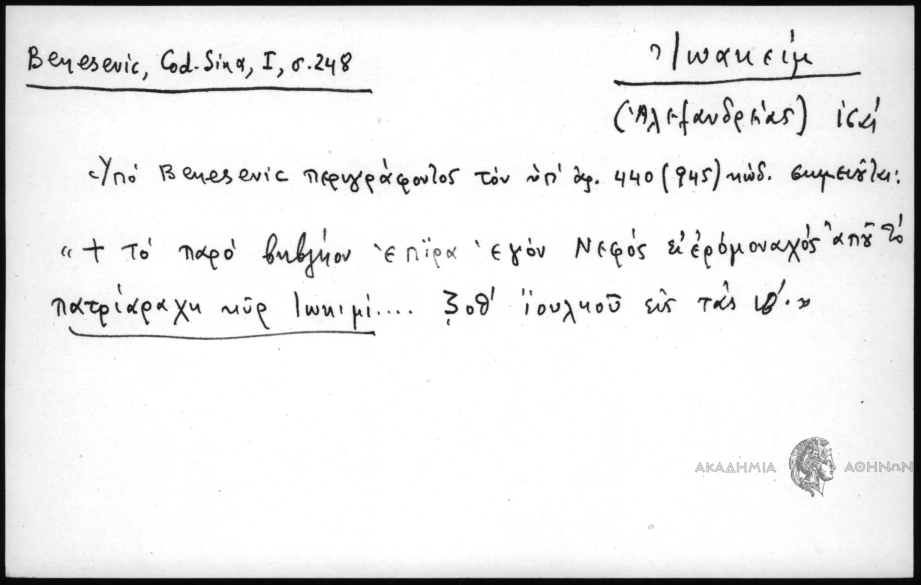 Benesevic, Cod. Sina, I, σ. 248
Ἰωακείμ
(Ἀλεξανδρείας)
Ὑπό Benesevic περιγράφοντος τόν ὑπ' ἀρ. 440 (945) κώδ. σημειοῦται:
« + τό παρό βηβλήον ἐπῖρα ἐγόν Νεφός εἰερόμοναχός ἀπό τό
πατρίαραχη κῦρ Ιωκιμί.... ζοθ' ἰουληοῦ εἰς τάς
ΑΚΑΔΗΜΙΑ ΑΘΗΝΩΝ